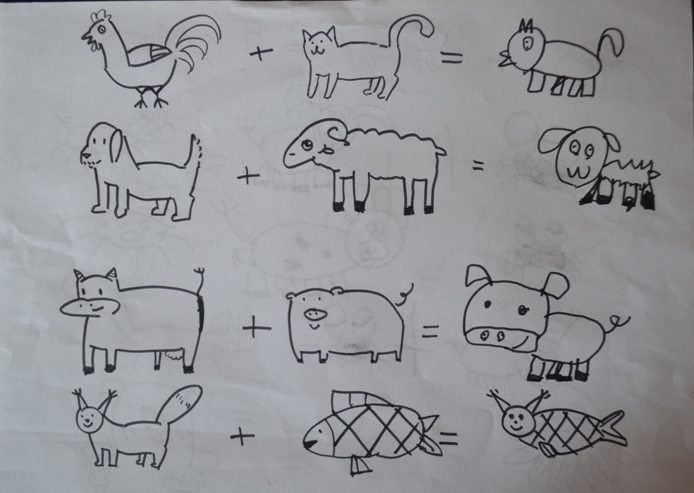 + =
+ =
+ =
+ =